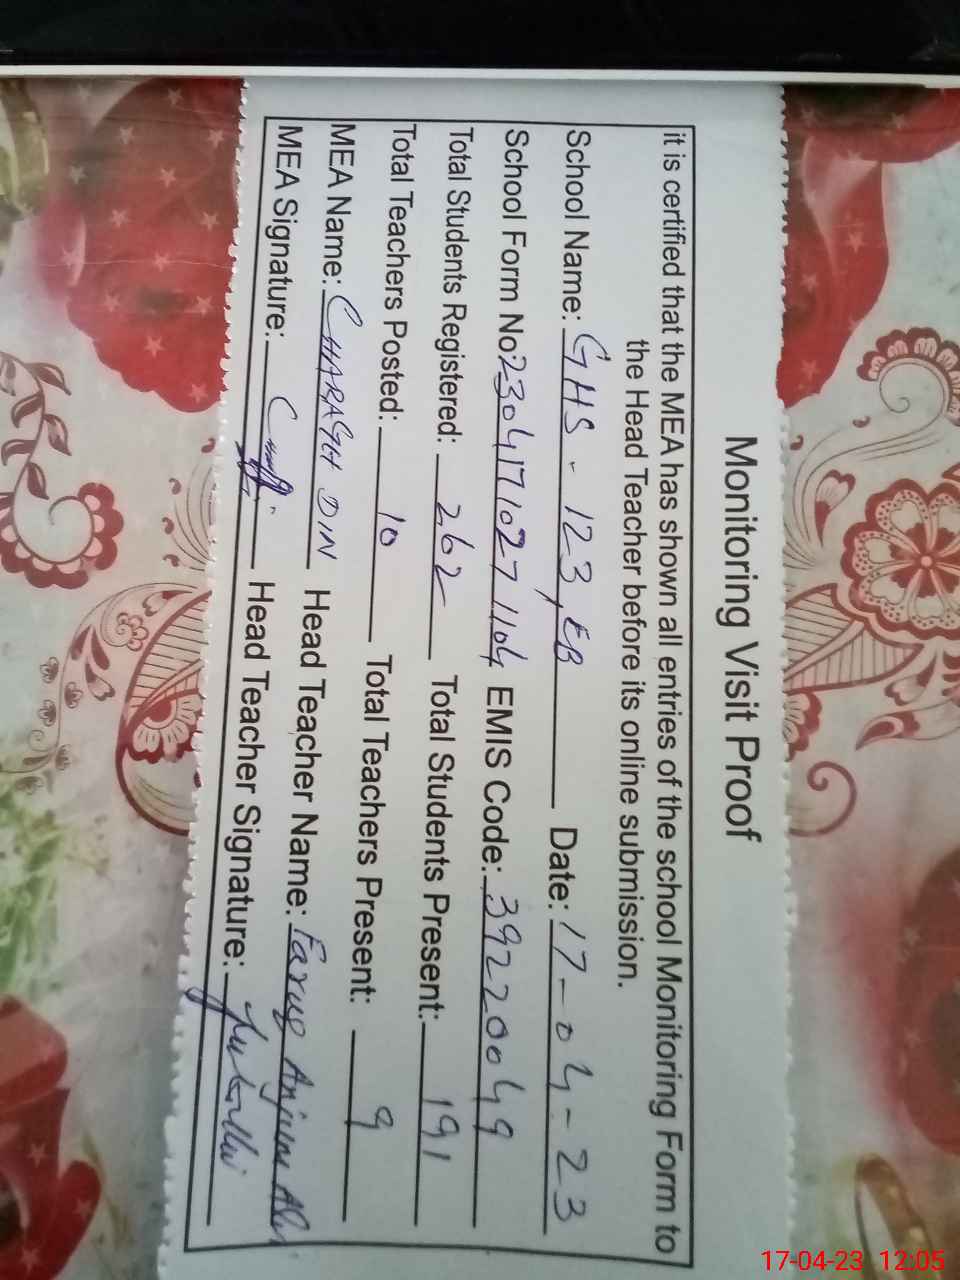 Monitoring Visit Proof
it is certified that the MEA has shown all entries of the school Monitoring Form to
the Head Teacher before its online submission.
School Name: GHS - 123, EB Date: 17-04-23
School Form No: 23041710271104 EMIS Code: 39220049
Total Students Registered: 262 Total Students Present: 191
Total Teachers Posted: 10 Total Teachers Present: 9
MEA Name: CHARAGH DIN Head Teacher Name: Faruq Anjum Ali
MEA Signature: Head Teacher Signature:
17-04-23 12:05